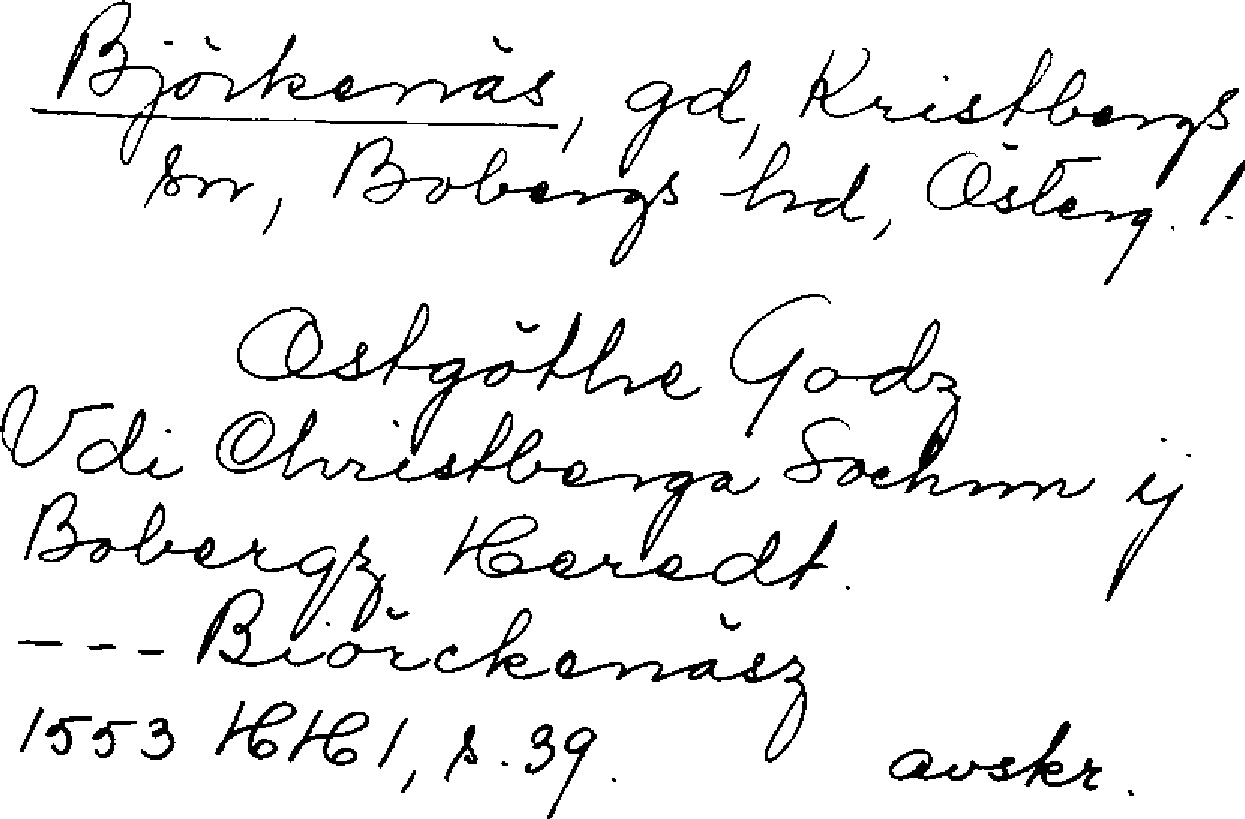 Björkenäs, gd, Kristbergs
sn, Bobergs hd, Österg. l.
Östgöthe Godz
Vdi Christberga Sochnn ij
Bobergz Heredt.
--- Biörckenäsz
1553 HH1, s. 39.
avskr.